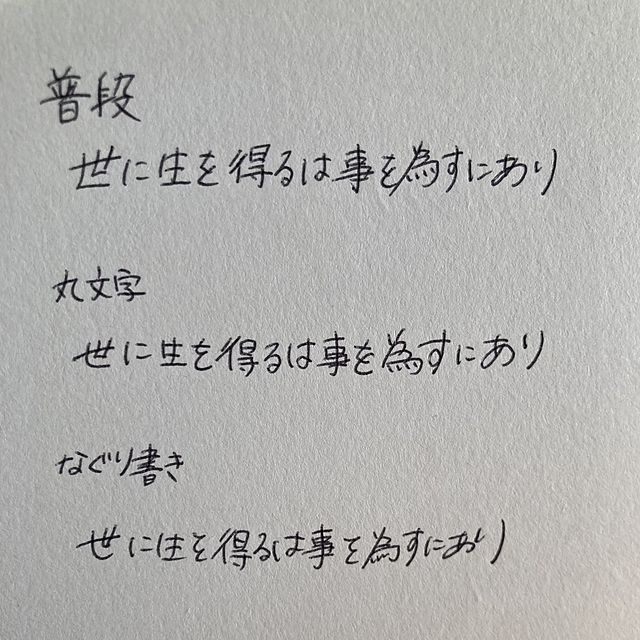 普段
世に生を得るは事を為すにあり
丸文字
世に生を得るは事を為すにあり
なぐり書き
世に生を得るは事を為すにあり